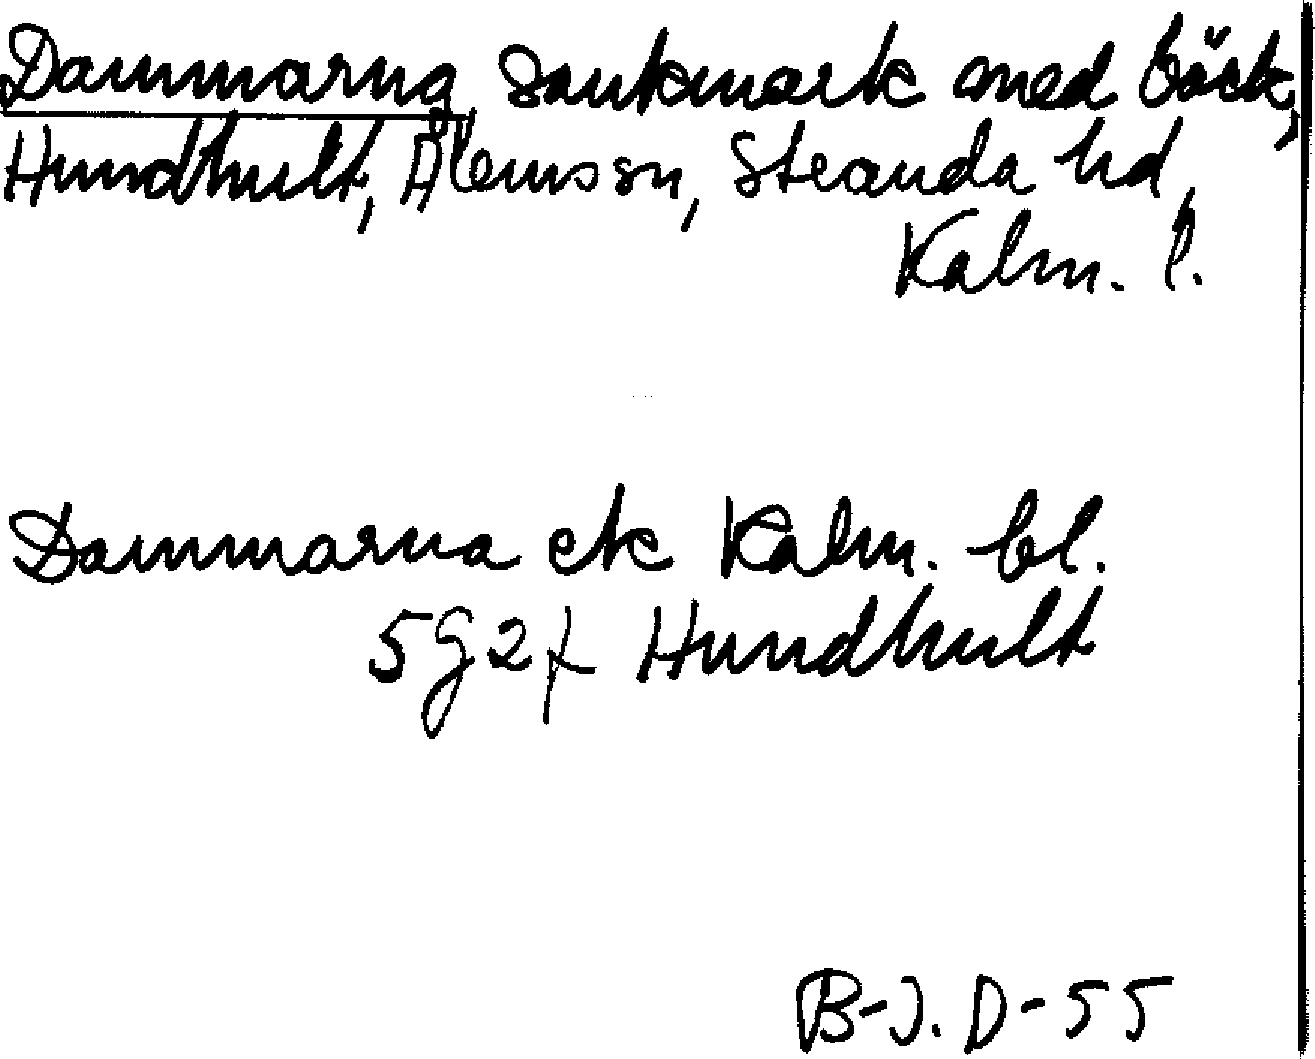 Dammarna, Sankmark med bäck,
Hundhult, Ålems sn, Stranda hd,
Kalm. l.
Dammarna ek Kalm. bl.
5g2f Hundhult
B-J. D-55